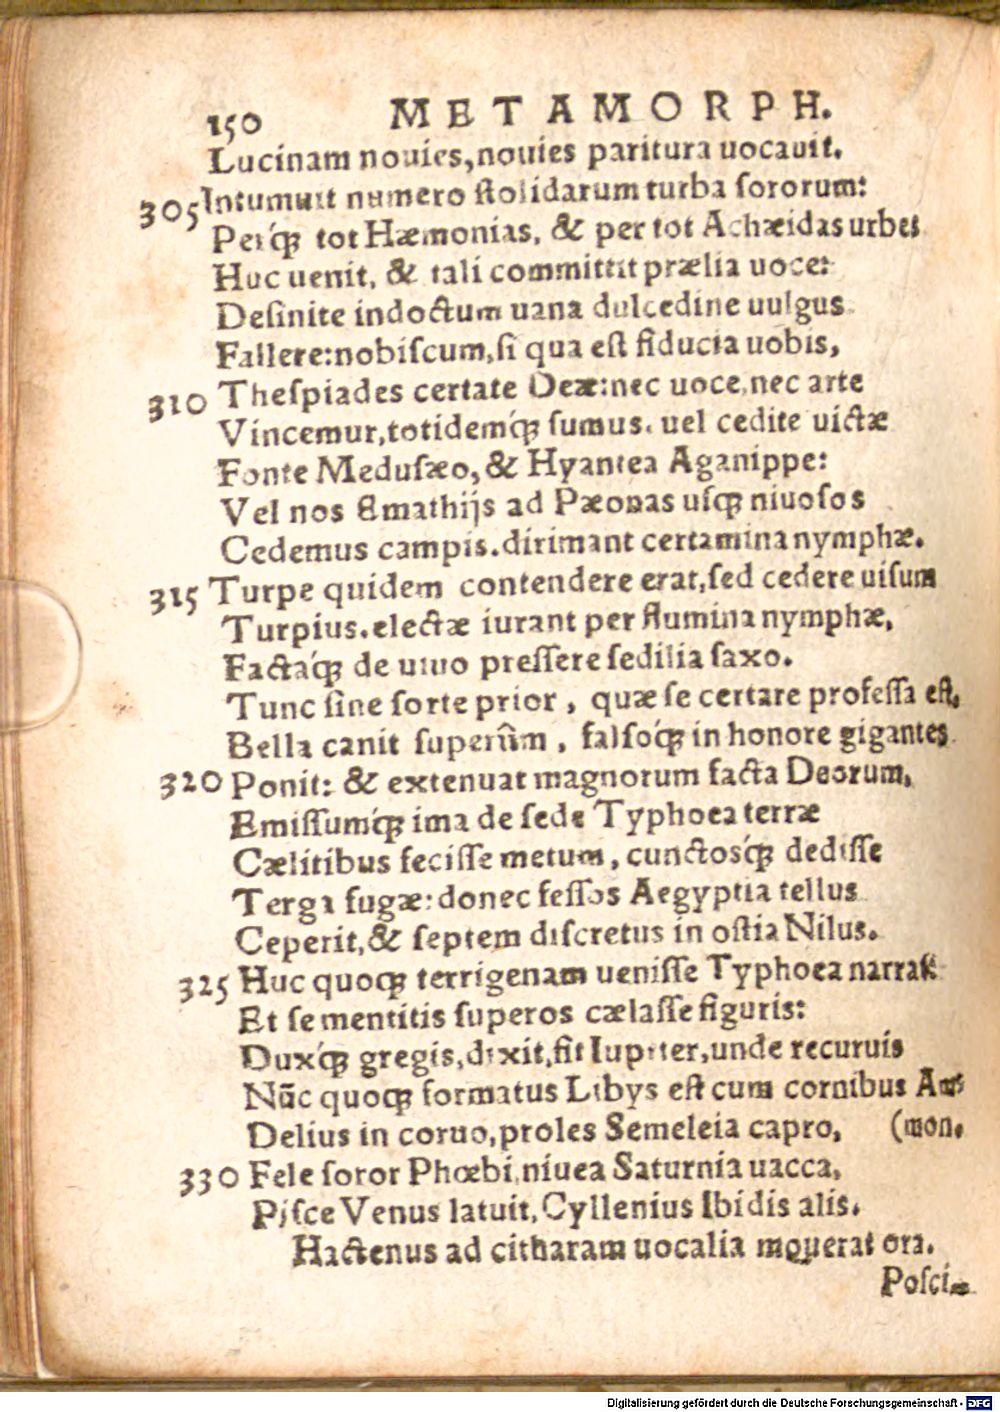 150 METAMORPH.
Lucinam nouies, nouies paritura uocauit.
305 Intumuit numero ſtolidarum turba ſororum:
Perq́; tot Hæmonias, & per tot Achæidas urbes
Huc uenit, & tali committit prælia uoce:
Deſinite indoctum uana dulcedine uulgus
Fallere: nobiſcum, ſi qua eſt fiducia uobis,
310 Theſpiades certate Deæ: nec uoce, nec arte
Vincemur, totidemq́; ſumus. uel cedite uictæ
Fonte Meduſæo, & Hyantea Aganippe:
Vel nos Emathijs ad Pæonas uſq; niuoſos
Cedemus campis. dirimant certamina nymphæ.
315 Turpe quidem contendere erat, ſed cedere uiſum
Turpius. electæ iurant per flumina nymphæ,
Factaq́; de uiuo preſſere ſedilia ſaxo.
Tunc ſine ſorte prior, quæ ſe certare profeſſa eſt,
Bella canit ſuperûm, falſoq́; in honore gigantes
320 Ponit: & extenuat magnorum facta Deorum,
Emiſſumq́; ima de ſede Typhoea terræ
Cælitibus feciſſe metum, cunctosq́; dediſſe
Terga fugæ: donec feſſos Aegyptia tellus
Ceperit, & ſeptem diſcretus in oſtia Nilus.
325 Huc quoq; terrigenam ueniſſe Typhoea narrat
Et ſe mentitis ſuperos cælaſſe figuris:
Duxq́; gregis, dixit, fit Iupiter, unde recuruis
Nūc quoq; formatus Libys eſt cum cornibus Am-
Delius in coruo, proles Semeleia capro, (mon.
330 Fele ſoror Phœbi, niuea Saturnia uacca,
Piſce Venus latuit, Cyllenius Ibidis alis.
Hactenus ad citharam uocalia mouerat ora.
Poſci-
Digitalisierung gefördert durch die Deutsche Forschungsgemeinschaft - DFG